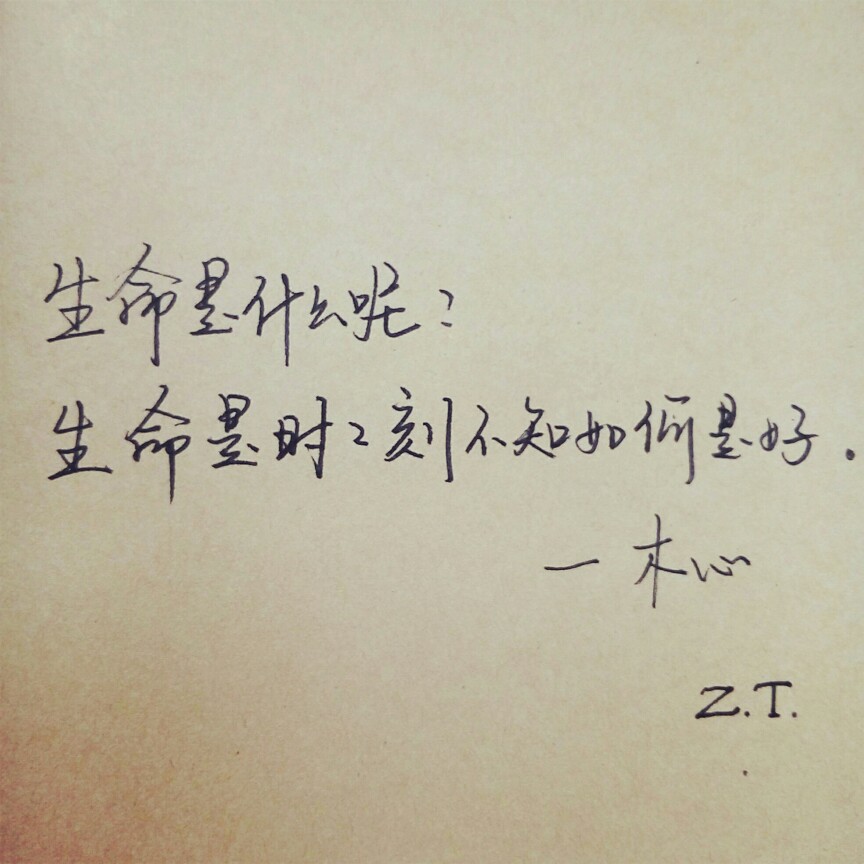 生命是什么呢?
生命是时々刻不知如何是好.
— 木心
Z.T.